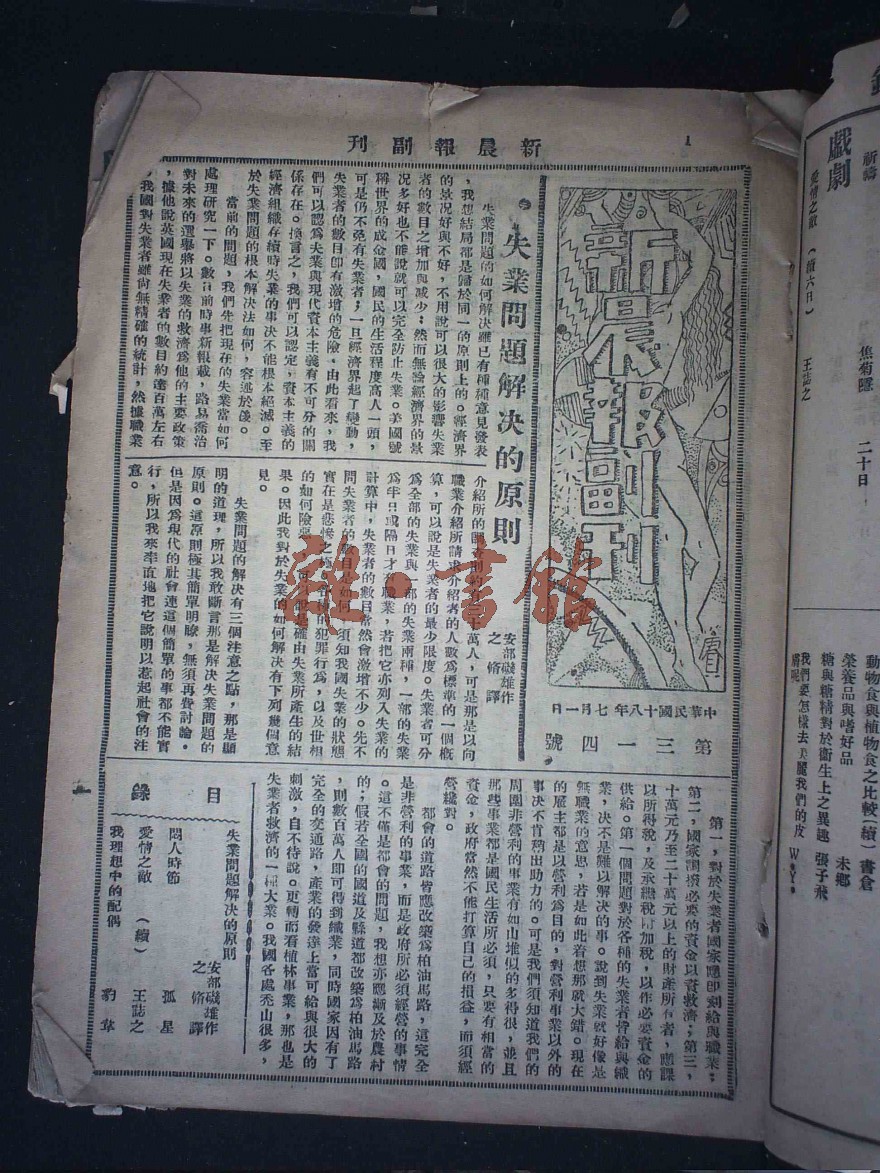 新晨報副刊
1
新晨報副刊
中華民國十八年七月一日
第三一四號
失業問題解決的原則
安部磯雄作
之脩譯
失業問題的如何解決雖已有種種意見發表
，我想結局都是歸於同一的原則上的。經濟界
的景况好與不好，不用說可以很大的影響失業
者的數目之增加與减少；然而無論經濟界的景
况多好也不能說就可以完全防止失業。美國號
稱世界的成金國，國民的生活程度高人一頭，
可是仍不免有失業者；一旦經濟界起了變動，
失業者的數目卽有激增的危險。由此看來，我
們可以認為失業與現代資本主義有不可分的關
係存在。換言之，我們可以認定，資本主義的
經濟組織存續時失業的事決不能根本絕滅。至
於失業問題的根本解決法如何，容述於後。
當前的問題，我們先把現在的失業當如何
處理研究一下。數日前時事新報載，路易喬治
對未來的選舉將以失業的救濟為他的主要政策
，據他說英國現在失業者的數目約達百萬左右
，我國對失業者雖尙無精確的統計，然據職業
介紹所的調查則約有三十萬人，可是那是以向
職業介紹所請求介紹者的人數為標準的一個概
算，可以說是失業者的最少限度。失業者可分
為全部的失業與一部的失業兩種，一部的失業
為半日或隔日才有職業，若把它亦列入失業的
計算中，失業者的數目當然會激增不少。先不
問失業者的數目是如何，須知我國失業的狀態
實在是悲慘之極。各種的犯罪行為，以及世相
的如何險惡，可以說是確由失業所產生的結
果。因此我對於失業的如何解決有下列幾個意
見。
失業問題的解決有三個注意之點，那是顯
明的道理，所以我敢斷言那是解決失業問題的
原則。這原則極其簡單明瞭，無須再費討論。
但是因為現代的社會連這個簡單的事都不能實
行，所以我來率直地把它說明以惹起社會的注
意。
第一，對於失業者國家應卽刻給與職業；
第二，國家須撥必要的資金以資救濟；第三，
十萬元乃至二十萬元以上的財產所有者，應課
以所得稅，及承繼稅附加稅，以作必要資金的
供給。第一個問題對於各種的失業者皆給與職
業，決不是難以解決的事。說到失業就好像是
無職業的意思，若是如此着想那就大錯。現在
的雇主都是以營利為目的，對營利事業以外的
事決不肯稍出助力的。可是我們須知道我們的
周圍非營利的事業有如山堆似的多得很，並且
那些事業都是國民生活所必須，只要有相當的
資金，政府當然不能打算自己的損益，而須經
營纔對。
都會的道路皆應改築為柏油馬路，這完全
是非營利的事業，而是政府所必須經營的事情
。這不僅是都會的問題，我想亦應漸及於農村
的；假若全國的國道及縣道都改築為柏油馬路
，則數百萬人卽可得到職業，同時國家因有了
完全的交通路，產業的發達上當可給與很大的
刺激，自不待說。更轉而看植林事業，那也是
失業者救濟的一種大業。我國各處禿山很多，
目錄
失業問題解決的原則
安部磯雄作
之脩譯
悶人時節
孤星
愛情之敵（續）
王誌之
我理想中的配偶
豹韋
龍·書館
祈禱
焦菊隱
二十日
戲劇
愛情之敵（續六日）
王誌之
動物食與植物食之比較（續）書倉
榮養品與嗜好品
未鄉
糖與糖精對於衛生上之異趣
張子飛
我們要怎樣去美麗我們的皮
膚呢
W.Y.